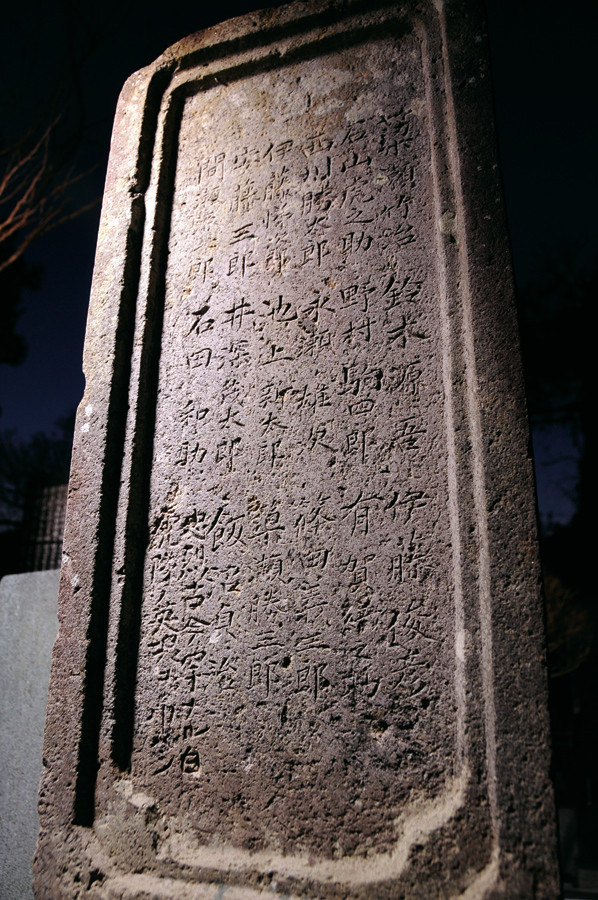 簗瀬竹治 鈴木源吾 伊藤俊彦
石山虎之助 野村駒四郎 有賀織之助
西川勝太郎 永瀬雄次 篠田義三郎
伊藤悌次郎 池上新太郎 簗瀬勝三郎
安藤三郎 井深茂太郎 飯沼貞治
間瀬源七郎 石田和助 忠烈古今 白
虎隊英